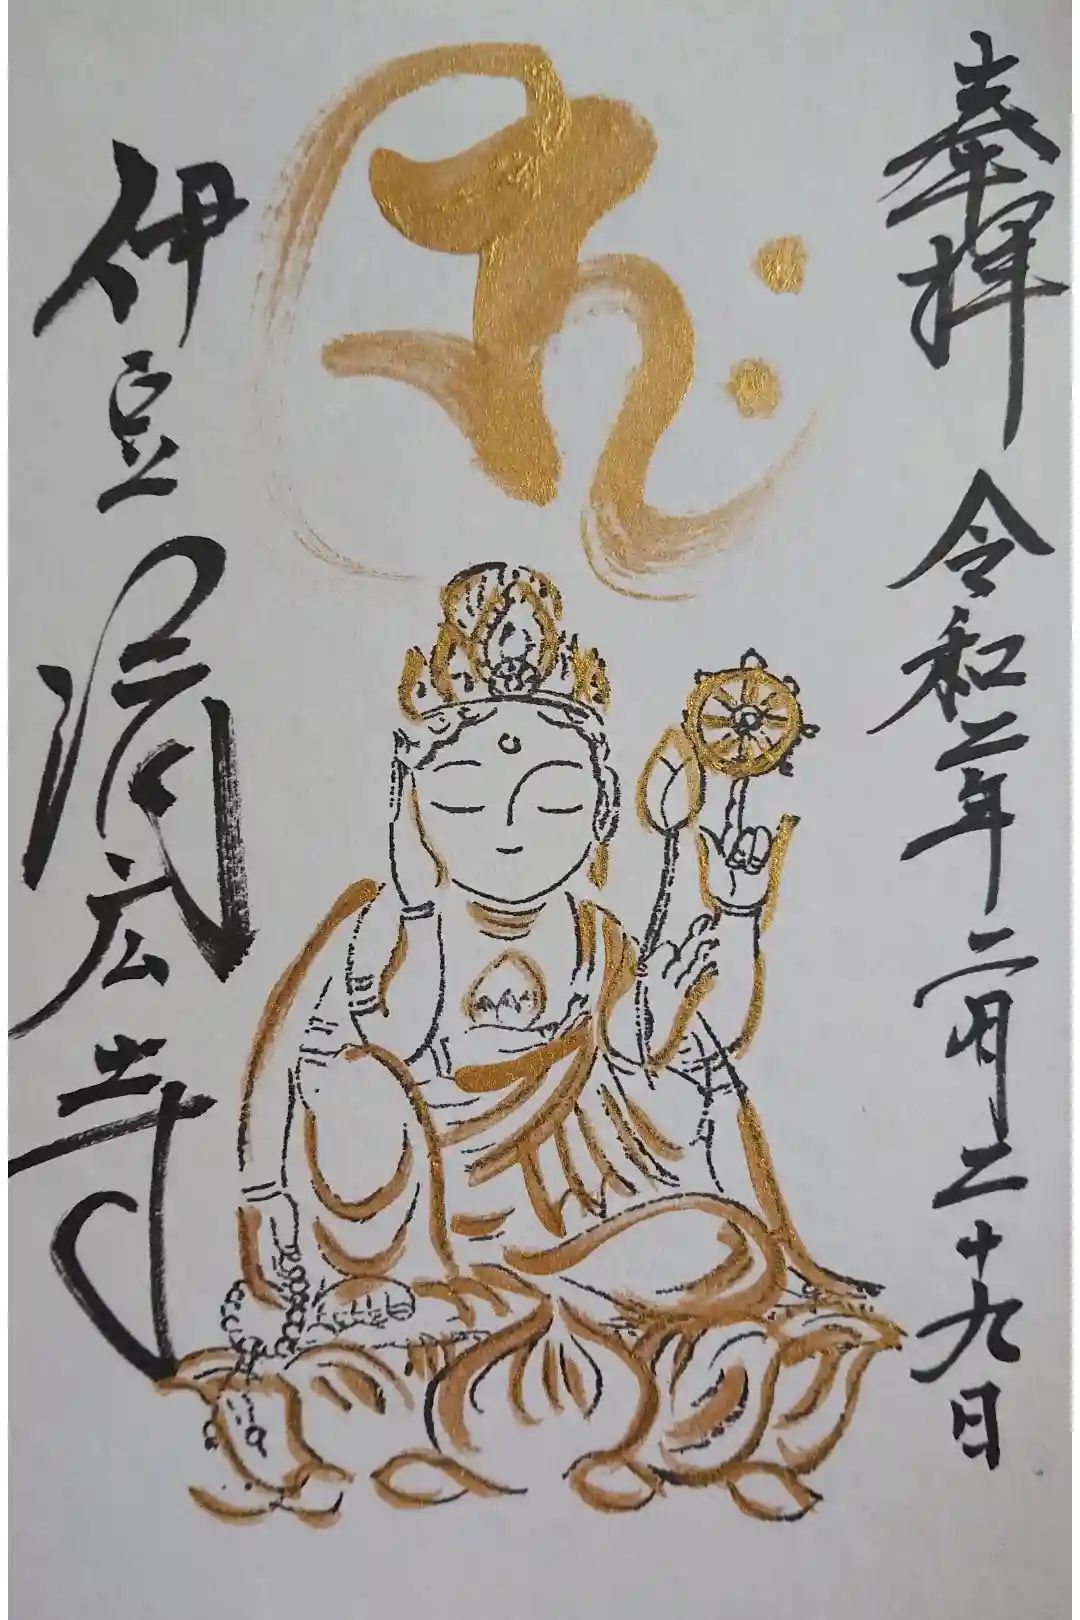 奉拝 令和二年二月二十九日
𑖮𑖿𑖨𑖱𑖾
伊豆 済広寺